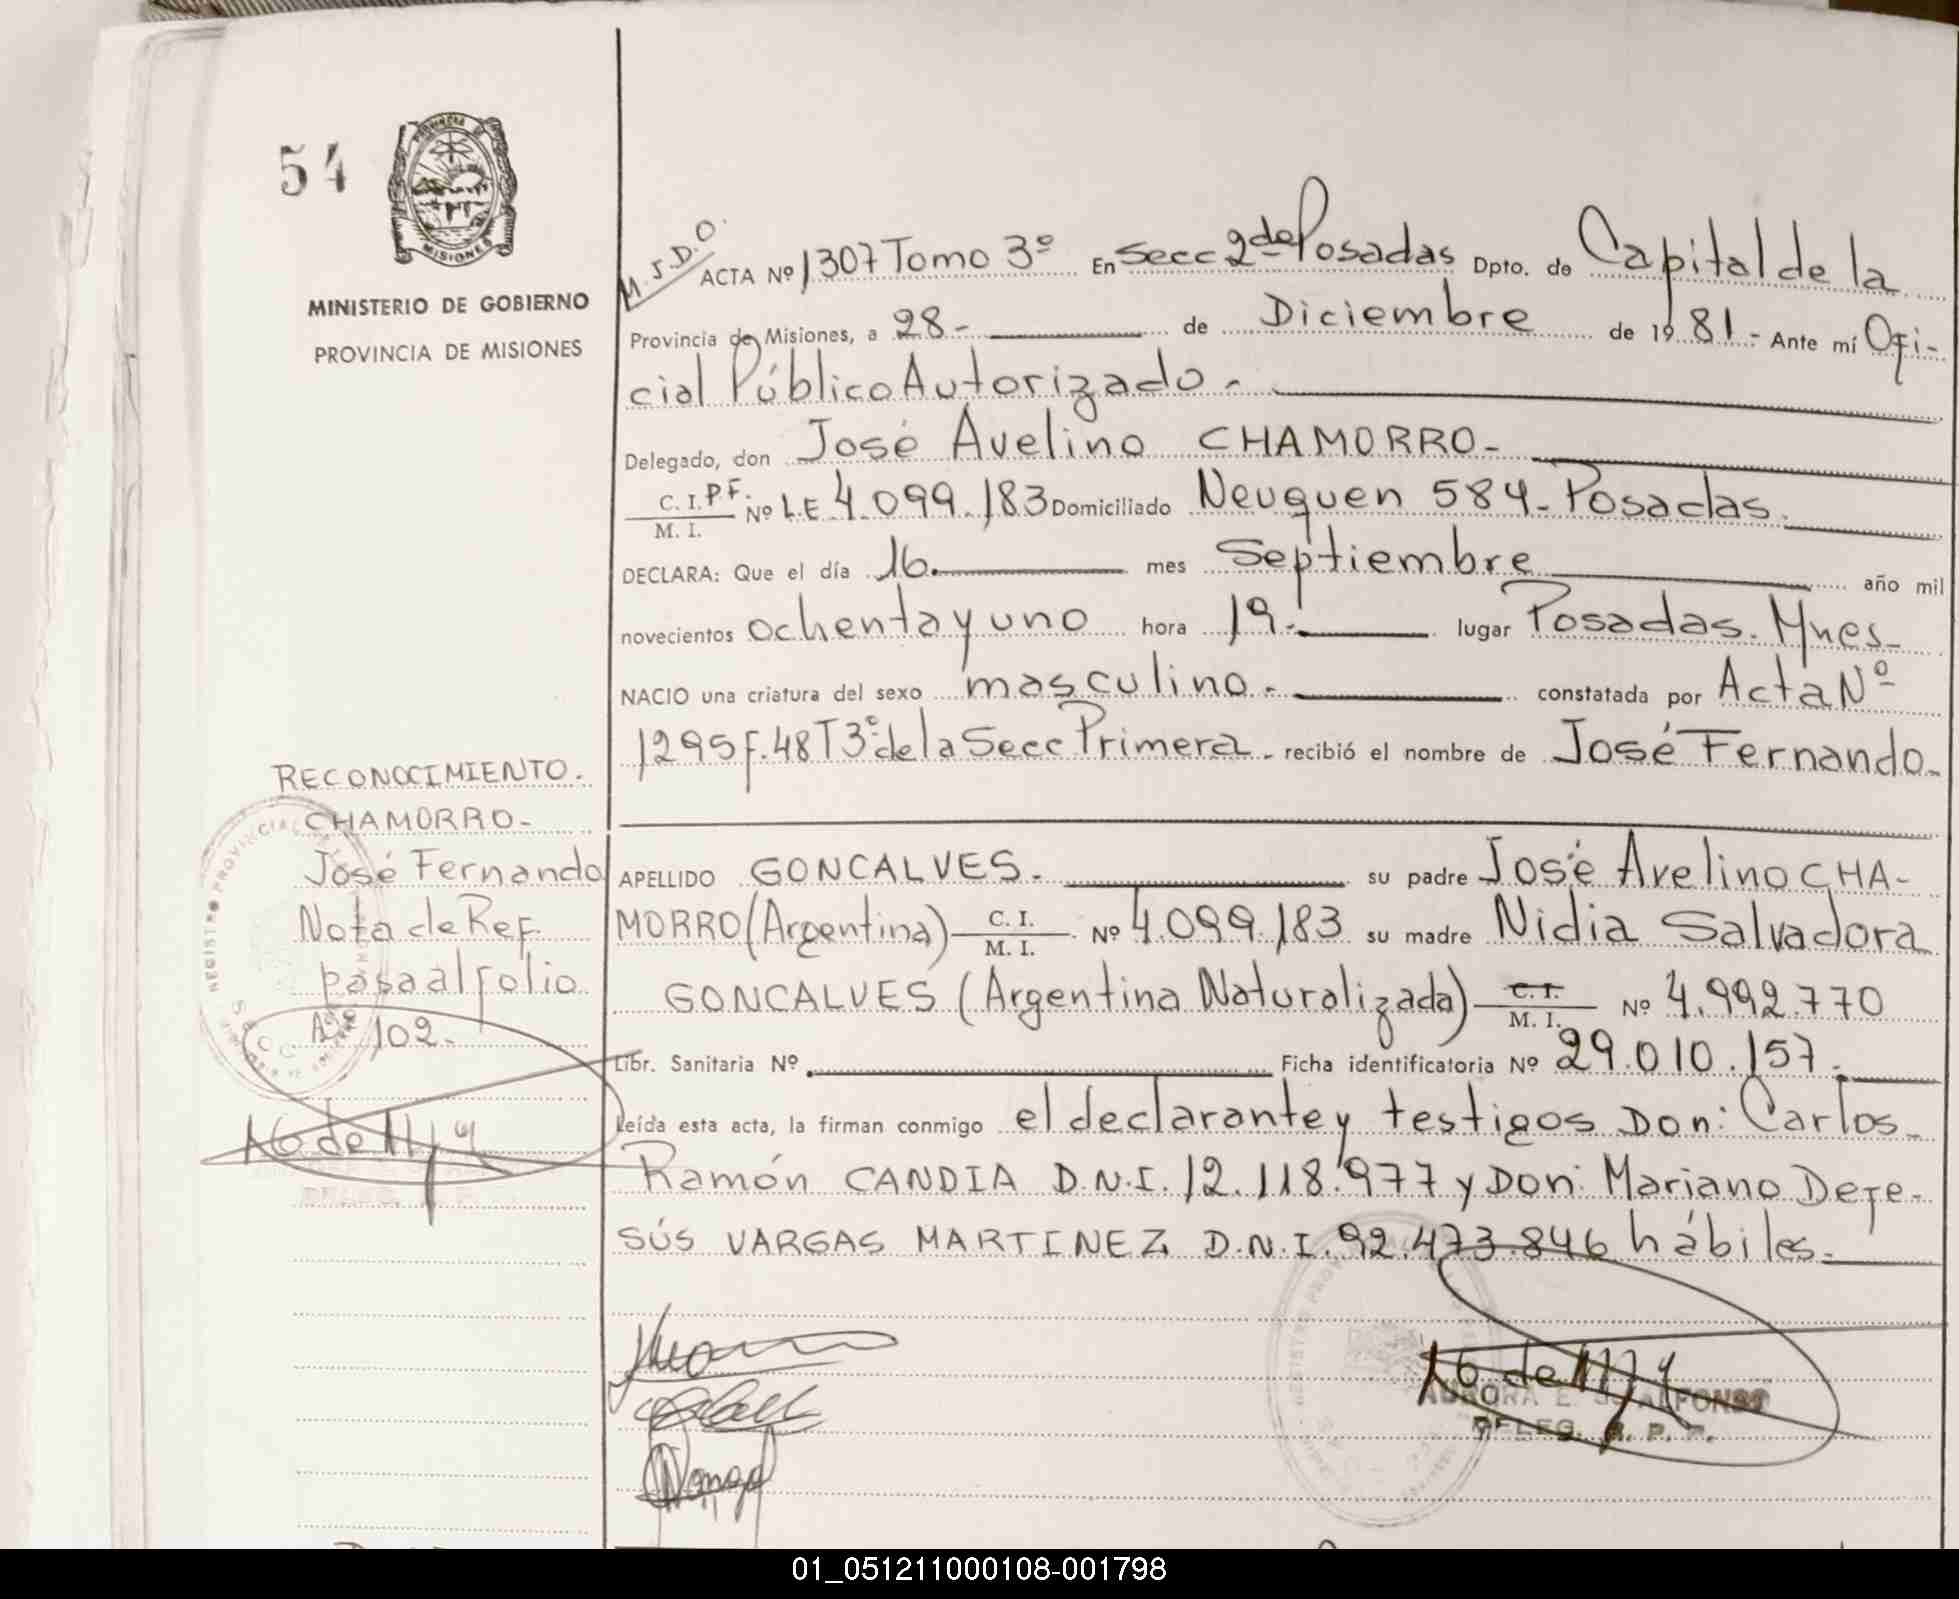 54
PROVINCIA DE
MISIONES
MINISTERIO DE GOBIERNO
PROVINCIA DE MISIONES
M.S.D.O.
ACTA Nº 1307 Tomo 3º En Secc 2da de Posadas Dpto. de Capital de la
Provincia de Misiones, a 28.- de Diciembre de 1981.- Ante mí Ofi-
cial Público Autorizado.-
Delegado, don José Avelino CHAMORRO-
C.I.P.F. / M. I. Nº L.E 4.099.183 Domiciliado Neuquen 584-Posadas.
DECLARA: Que el día 16. mes Septiembre año mil
novecientos ochenta y uno hora 19.- lugar Posadas. Mnes-
NACIO una criatura del sexo masculino.- constatada por Acta Nº
1295 F.48 T3º de la Secc Primera - recibió el nombre de José Fernando-
RECONOCIMIENTO.
CHAMORRO-
José Fernando
Nota de Ref.
pasa al folio
Nº 102.-
APELLIDO GONCALVES.- su padre José Avelino CHA-
MORRO (Argentina) C. I. / M. I. Nº 4.099.183 su madre Nidia Salvadora
GONCALVES (Argentina Naturalizada) C. I. / M. I. Nº 4.992.770
Libr. Sanitaria Nº Ficha identificatoria Nº 29.010.157.-
Leída esta acta, la firman conmigo el declarante y testigos Don: Carlos-
Ramón CANDIA D.N.I. 12.118.977 y Don: Mariano Deje-
sús VARGAS MARTINEZ D.N.I. 92.473.846 hábiles.-
REGISTRO PROVINCIAL DE LAS
AURORA E. DE ALFONSO
DELEG. R. P. P.
01_051211000108-001798